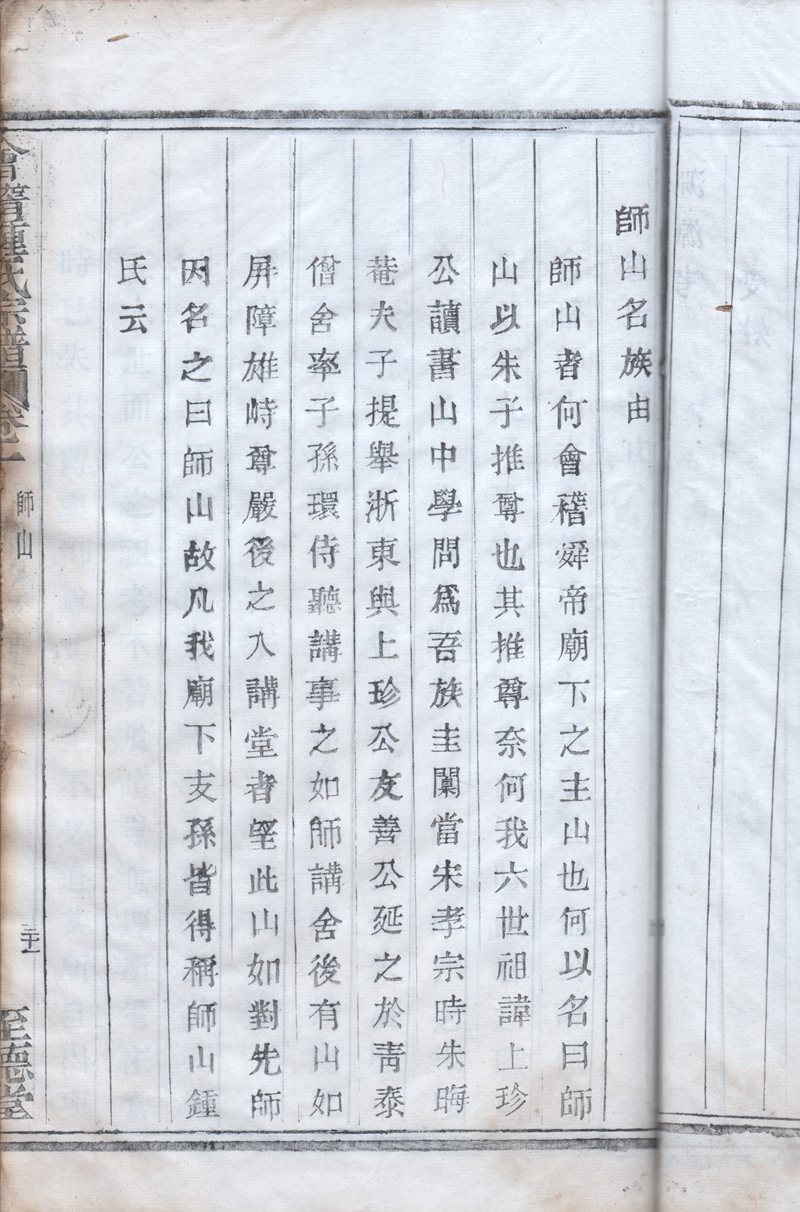 師山名族由
師山者何會稽舜帝廟下之主山也何以名曰師
山以朱子推尊也其推尊奈何我六世祖諱上珍
公讀書山中學問爲吾族圭闑當宋孝宗時朱晦
菴夫子提舉浙東與上珍公友善公延之於靑泰
僧舍率子孫環侍聽講事之如師講舍後有山如
屏障雄峙尊嚴後之入講堂者望此山如對先師
因名之曰師山故凡我廟下支孫皆得稱師山鍾
氏云
會稽鍾氏宗譜 卷一
師山
三十一
至德堂